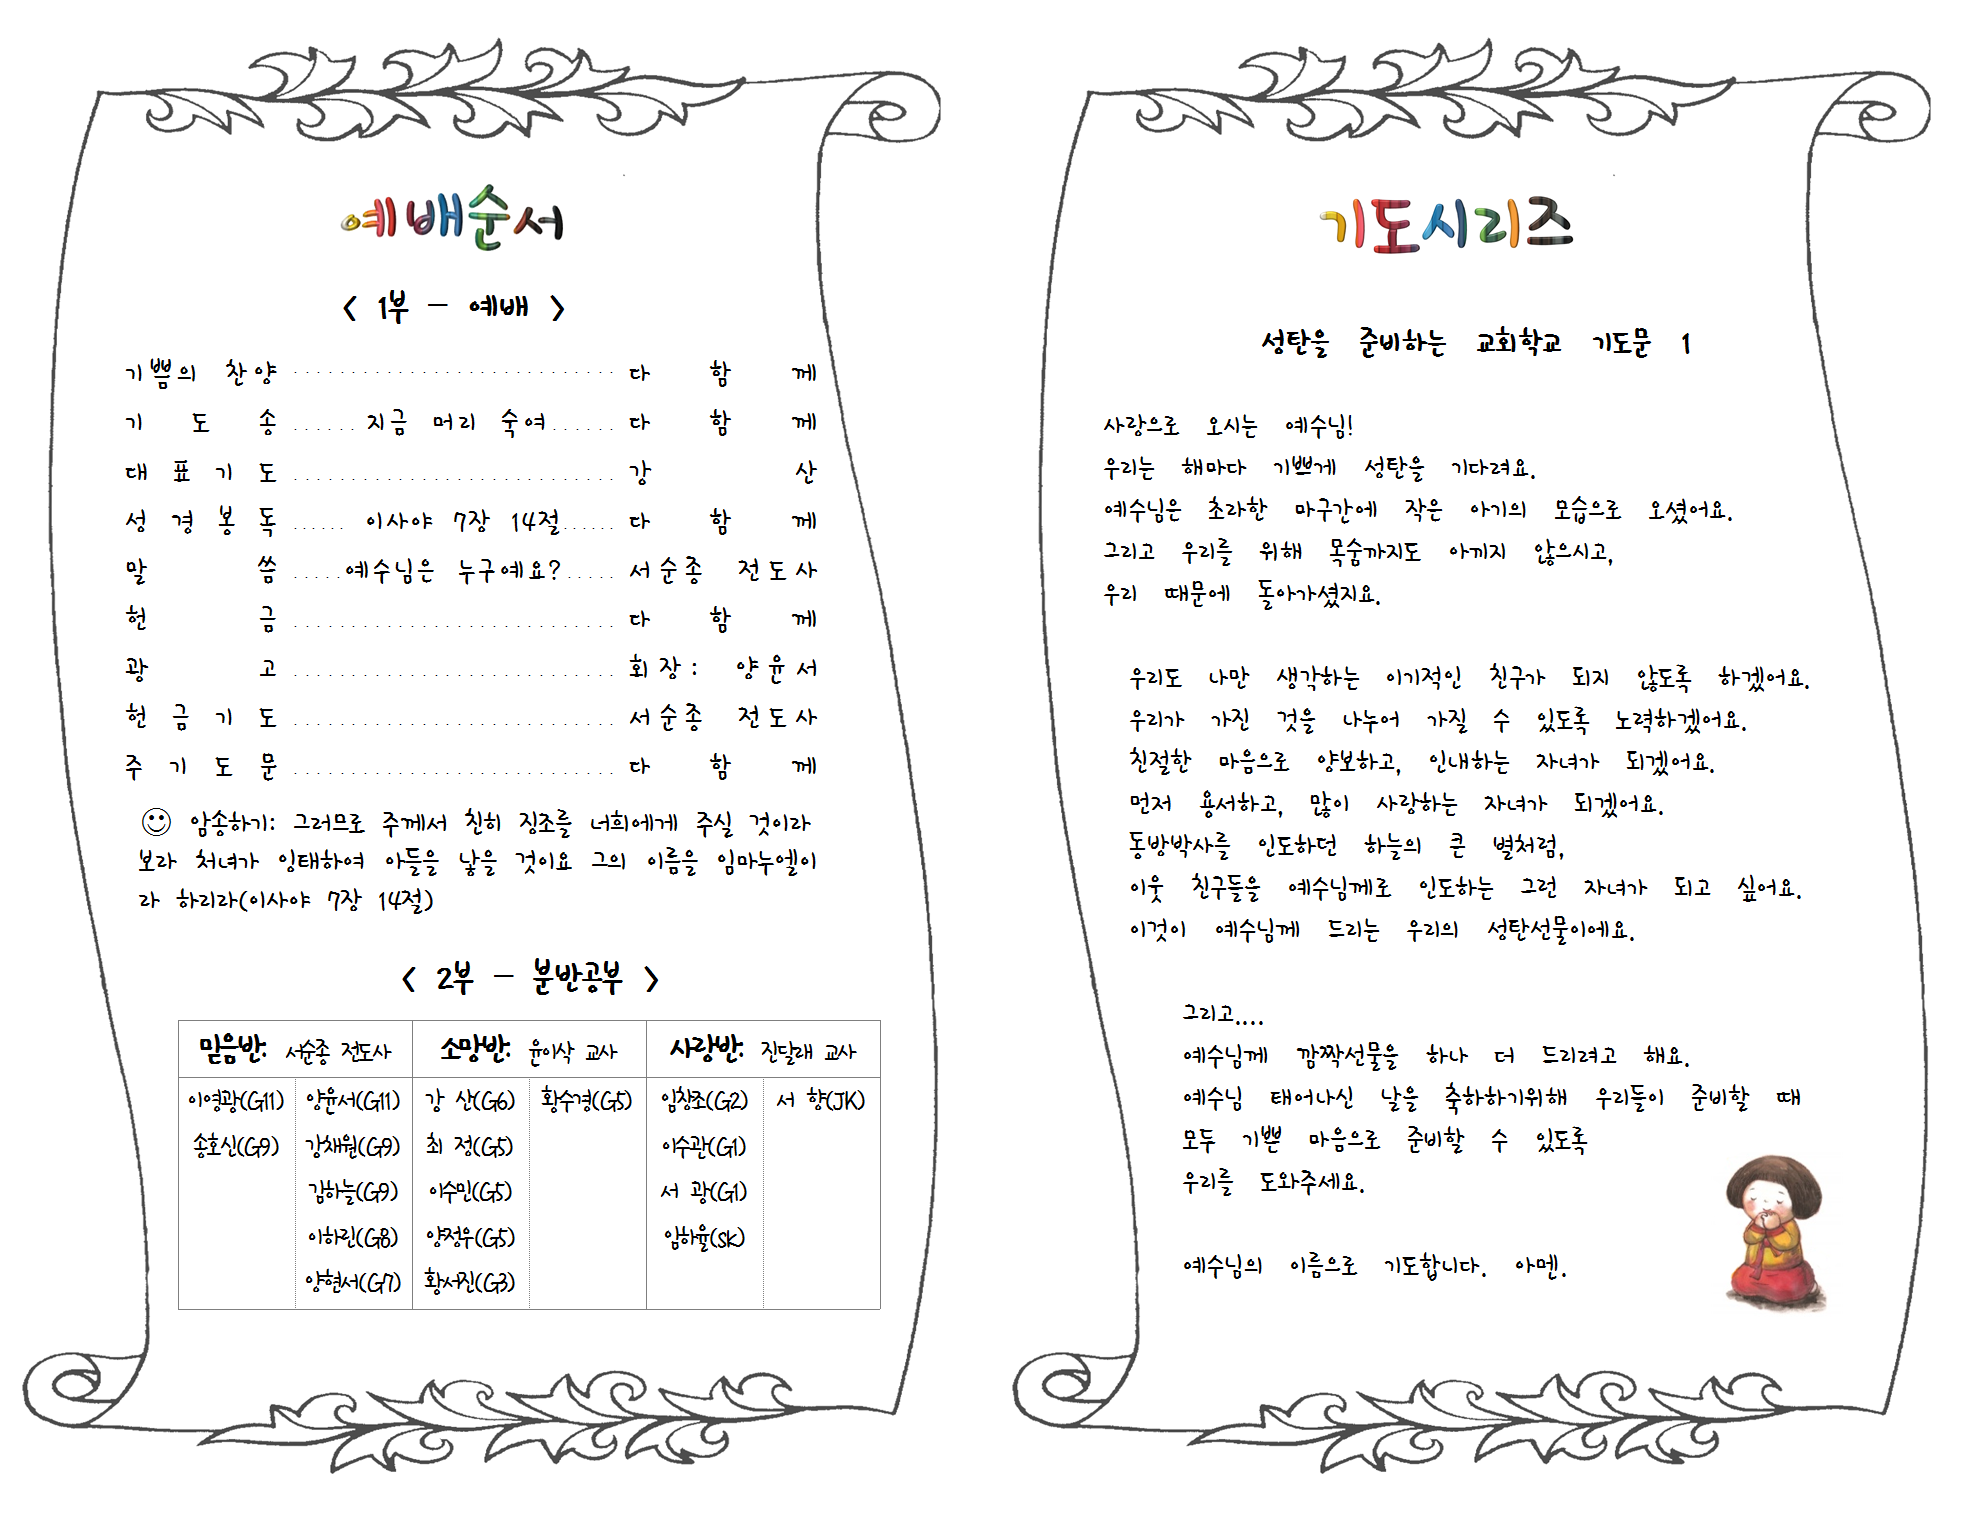 예배순서
< 1부 - 예배 >
기쁨의 찬양 ............................ 다 함 께
기 도 송 ...... 지금 머리 숙여 ...... 다 함 께
대 표 기 도 ............................ 강 산
성 경 봉 독 ...... 이사야 7장 14절 ...... 다 함 께
말 씀 ..... 예수님은 누구예요? ..... 서순종 전도사
헌 금 ............................ 다 함 께
광 고 ............................ 회장: 양윤서
헌 금 기 도 ............................ 서순종 전도사
주 기 도 문 ............................ 다 함 께
☺ 암송하기: 그러므로 주께서 친히 징조를 너희에게 주실 것이라
보라 처녀가 잉태하여 아들을 낳을 것이요 그의 이름을 임마누엘이
라 하리라(이사야 7장 14절)
< 2부 - 분반공부 >
믿음반: 서순종 전도사 소망반: 윤이삭 교사 사랑반: 진달래 교사
이영광(G11) 양윤서(G11) 강 산(G6) 황수경(G5) 임창조(G2) 서 향(JK)
송호신(G9) 강채원(G9) 최 정(G5) 이수관(G1)
김하늘(G9) 이수민(G5) 서 광(G1)
이하린(G8) 양정우(G5) 임하율(SK)
양현서(G7) 황서진(G3)
기도시리즈
성탄을 준비하는 교회학교 기도문 1
사랑으로 오시는 예수님!
우리는 해마다 기쁘게 성탄을 기다려요.
예수님은 초라한 마구간에 작은 아기의 모습으로 오셨어요.
그리고 우리를 위해 목숨까지도 아끼지 않으시고,
우리 때문에 돌아가셨지요.
우리도 나만 생각하는 이기적인 친구가 되지 않도록 하겠어요.
우리가 가진 것을 나누어 가질 수 있도록 노력하겠어요.
친절한 마음으로 양보하고, 인내하는 자녀가 되겠어요.
먼저 용서하고, 많이 사랑하는 자녀가 되겠어요.
동방박사를 인도하던 하늘의 큰 별처럼,
이웃 친구들을 예수님께로 인도하는 그런 자녀가 되고 싶어요.
이것이 예수님께 드리는 우리의 성탄선물이에요.
그리고....
예수님께 깜짝선물을 하나 더 드리려고 해요.
예수님 태어나신 날을 축하하기위해 우리들이 준비할 때
모두 기쁜 마음으로 준비할 수 있도록
우리를 도와주세요.
예수님의 이름으로 기도합니다. 아멘.